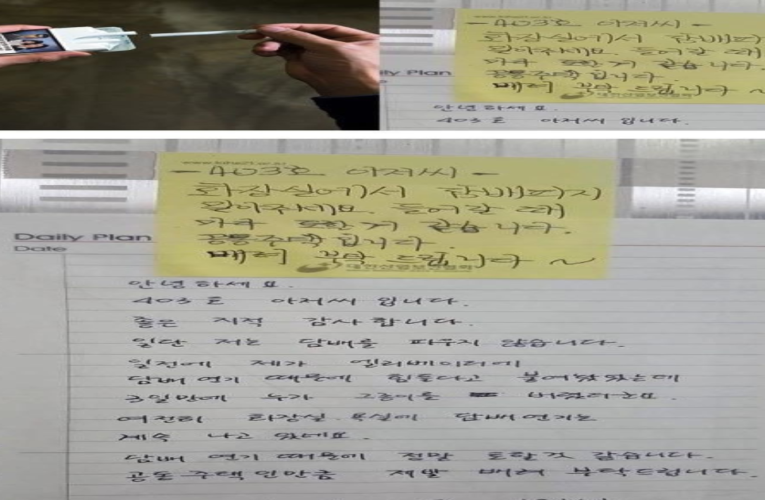 - 403호 아저씨 -
화장실에서 담배피지
말아주세요. 들어갈 때
마다
공동주택 입니다.
배려 부탁 드립니다 ~
안녕하세요.
403호 아저씨 입니다.
- 403호 아저씨 -
화장실에서 담배피지
말아주세요. 들어갈 때
마다 거 같습니다.
공동주택 입니다.
배려 부탁 드립니다 ~
대한산업보건협회
Daily Plan
Date
안녕하세요.
403호 아저씨 입니다.
좋은 지적 감사합니다.
일단 저는 담배를 피우지 않습니다.
일전에 제가 엘리베이터에
담배 연기 때문에 힘들다고 붙여놨었는데
3일만에 누가 그종이를 버렸더군요.
여전히 화장실. 욕실에 담배연기는
계속 나고 있네요.
담배 연기 때문에 정말 토할것 같습니다.
공동주택인만큼 제발 배려 부탁드립니다.